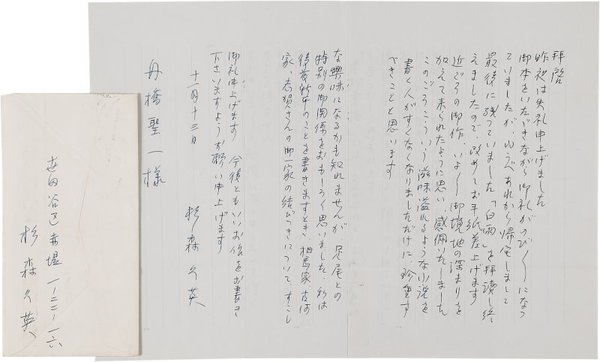 拝啓
昨夜は失礼申上げました
御本をいただきながら御礼がのび〱になつ
ていましたが 昨夜あれから帰宅しまして
最後に残っていました「白雨」を拝読し終
えましたので、改めてお手紙差上げます
近ごろの御作 いよ〱御境地の深まりを
加えて来られたように思い 感佩いたしました
このごろこういう滋味溢れるような小説を
書く人がすくなくなりましただけに、珍重す
べきことと思います
な興味になるかも知れませんが 足尾との
特別の御関係をおもしろく思いました 私は
後藤新平のことを書きますとき、相馬家
家、志賀さんの御一家の結びつきについて すこし
御礼申上げます 今後ともいいお作をお書き
下さいますようお願い申上げます
十一月十三日
杉森久英
舟橋聖一様
世田谷区赤堤一ー二二ー一六
杉森久英